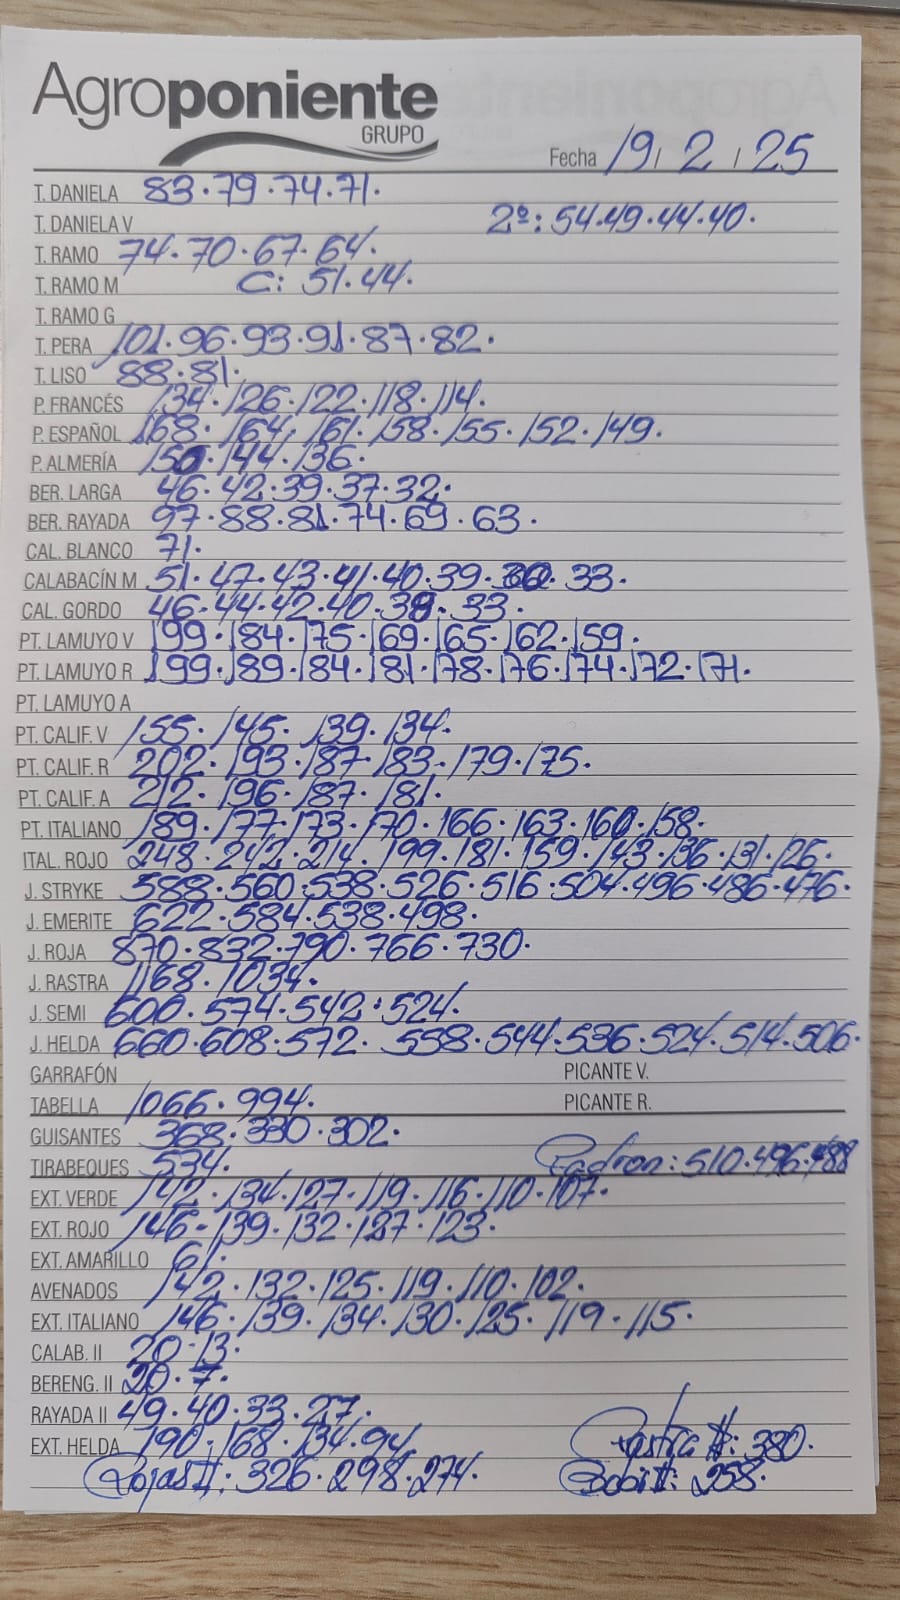 Agroponiente
GRUPO
Fecha 19 / 2 / 25
T. DANIELA 83.79.74.71.
T. DANIELA V 2º: 54.49.44.40.
T. RAMO 74.70.67.64.
T. RAMO M C: 51.44.
T. RAMO G
T. PERA 101.96.93.91.87.82.
T. LISO 88.81.
P. FRANCÉS 134.126.122.118.114.
P. ESPAÑOL 168.164.161.158.155.152.149.
P. ALMERÍA 150.144.136.
BER. LARGA 46.42.39.37.32.
BER. RAYADA 97.88.81.74.69.63.
CAL. BLANCO 71.
CALABACÍN M 51.47.43.41.40.39. 33.
CAL. GORDO 46.44.42.40.38.33.
PT. LAMUYO V 199.184.175.169.165.162.159.
PT. LAMUYO R 199.189.184.181.178.176.174.172.171.
PT. LAMUYO A
PT. CALIF. V 155.145.139.134.
PT. CALIF. R 202.193.187.183.179.175.
PT. CALIF. A 212.196.187.181.
PT. ITALIANO 189.177.173.170.166.163.160.158.
ITAL. ROJO 248.242.214.199.181.159.143.136.131.126.
J. STRYKE 588.560.538.526.516.504.496.486.476.
J. EMERITE 622.584.538.498.
J. ROJA 870.832.790.766.730.
J. RASTRA 1168.1034.
J. SEMI 600.574.542.524.
J. HELDA 660.608.572.558.544.536.524.514.506.
GARRAFÓN PICANTE V.
TABELLA 1066.994. PICANTE R.
GUISANTES 368.330.302.
TIRABEQUES 534. Padron: 510.496.488
EXT. VERDE 142.134.127.119.116.110.107.
EXT. ROJO 146.139.132.127.123.
EXT. AMARILLO 61.
AVENADOS 142.132.125.119.110.102.
EXT. ITALIANO 146.139.134.130.125.119.115.
CALAB. II 20.13.
BERENG. II 20.7.
RAYADA II 49.40.33.27.
EXT. HELDA 190.168.134.94. Rastra II: 380.
Rojas II: 326.298.274. Bobi II: 258.